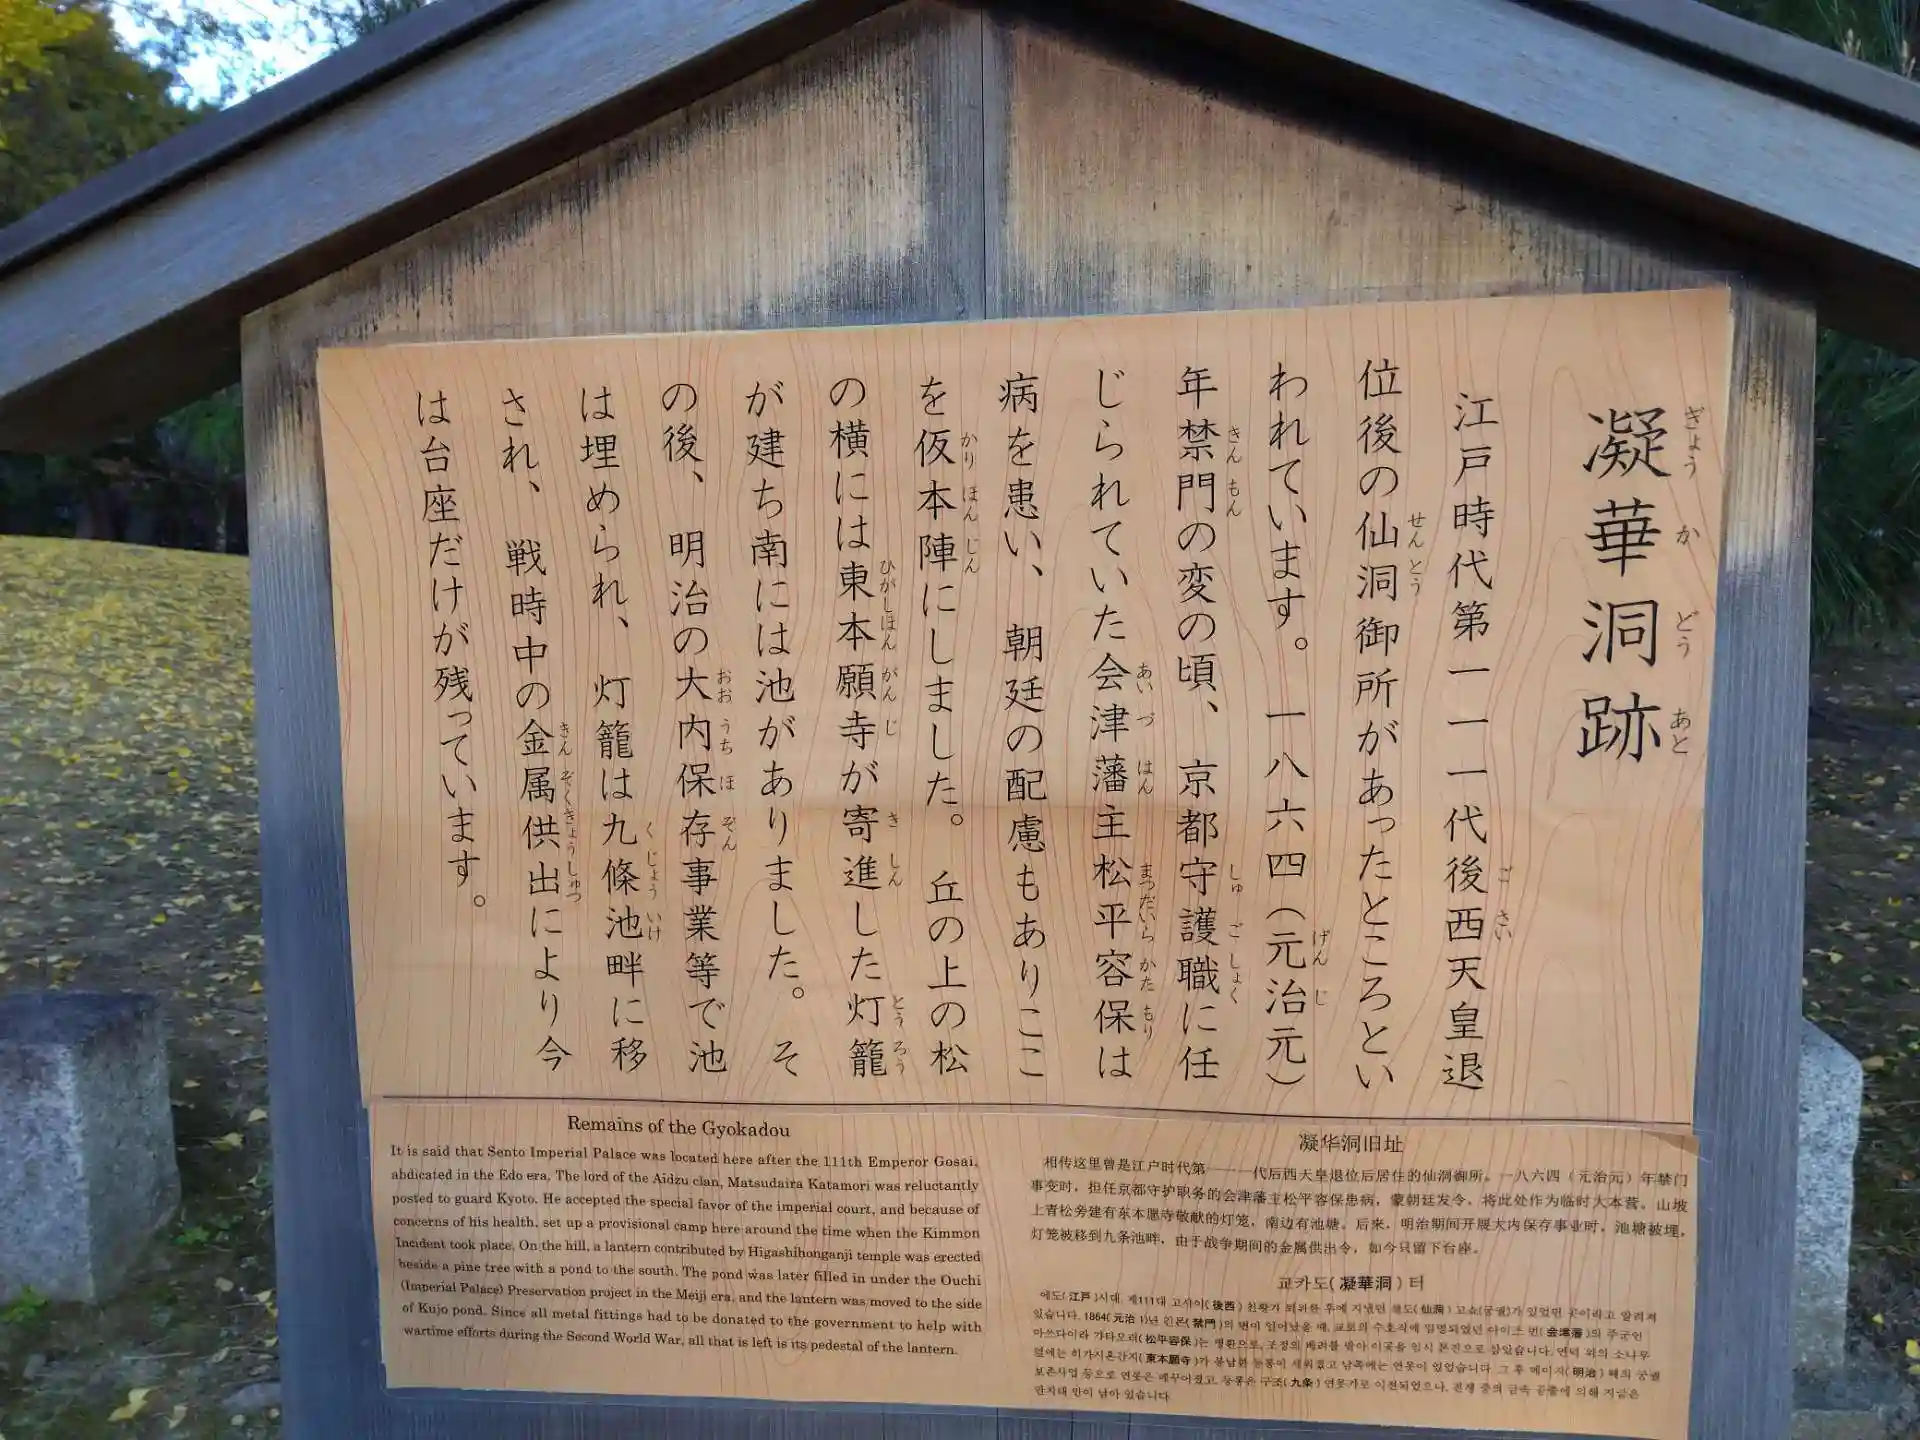 凝華洞跡
ぎょう か どう あと
江戸時代第一一一代後西天皇退
ご さい
位後の仙洞御所があったところとい
せんとう
われています。一八六四(元治元)
げん じ
年禁門の変の頃、京都守護職に任
きん もん しゅ ご しょく
じられていた会津藩主松平容保は
あい づ はん まつだいら かた もり
病を患い、朝廷の配慮もありここ
を仮本陣にしました。丘の上の松
かり ほん じん
の横には東本願寺が寄進した灯籠
ひがしほん がん じ き しん とう ろう
が建ち南には池がありました。そ
の後、明治の大内保存事業等で池
おお うち ほ ぞん
は埋められ、灯籠は九條池畔に移
く じょう いけ
され、戦時中の金属供出により今
きん ぞくきょうしゅつ
は台座だけが残っています。
Remains of the Gyokadou
It is said that Sento Imperial Palace was located here after the 111th Emperor Gosai,
abdicated in the Edo era. The lord of the Aidzu clan, Matsudaira Katamori was reluctantly
posted to guard Kyoto. He accepted the special favor of the imperial court, and because of
concerns of his health, set up a provisional camp here around the time when the Kimmon
Incident took place. On the hill, a lantern contributed by Higashihonganji temple was erected
beside a pine tree with a pond to the south. The pond was later filled in under the Ouchi
(Imperial Palace) Preservation project in the Meiji era, and the lantern was moved to the side
of Kujo pond. Since all metal fittings had to be donated to the government to help with
wartime efforts during the Second World War, all that is left is its pedestal of the lantern.
凝华洞旧址
相传这里曾是江户时代第一一一代后西天皇退位后居住的仙洞御所。一八六四（元治元）年禁门
事变时，担任京都守护职务的会津藩主松平容保患病，蒙朝廷发令，将此处作为临时大本营。山坡
上青松旁建有东本愿寺敬献的灯笼，南边有池塘。后来，明治期间开展大内保存事业时，池塘被埋，
灯笼被移到九条池畔，由于战争期间的金属供出令，如今只留下台座。
교카도(凝華洞) 터
에도(江戸)시대, 제111대 고사이(後西) 천황가 퇴위한 후에 지냈던 센도(仙洞) 고쇼(궁궐)가 있었던 곳이라고 알려져
있습니다. 1864(元治 1)년 긴몬(禁門)의 변이 일어났을 때, 교토의 수호직에 임명되었던 아이즈 번(会津藩)의 주군인
마쓰다이라 가타모리(松平容保)는 병환으로, 조정의 배려를 받아 이곳을 임시 본진으로 삼았습니다. 언덕 위의 소나무
옆에는 히가시혼간지(東本願寺)가 봉납한 등롱이 세워졌고 남쪽에는 연못이 있었습니다. 그 후 메이지(明治) 때의 궁궐
보존사업 등으로 연못은 메꾸어졌고, 등롱은 구조(九条) 연못가로 이전되었으나, 전쟁 중의 금속 공출에 의해 지금은
받침대 만이 남아 있습니다.